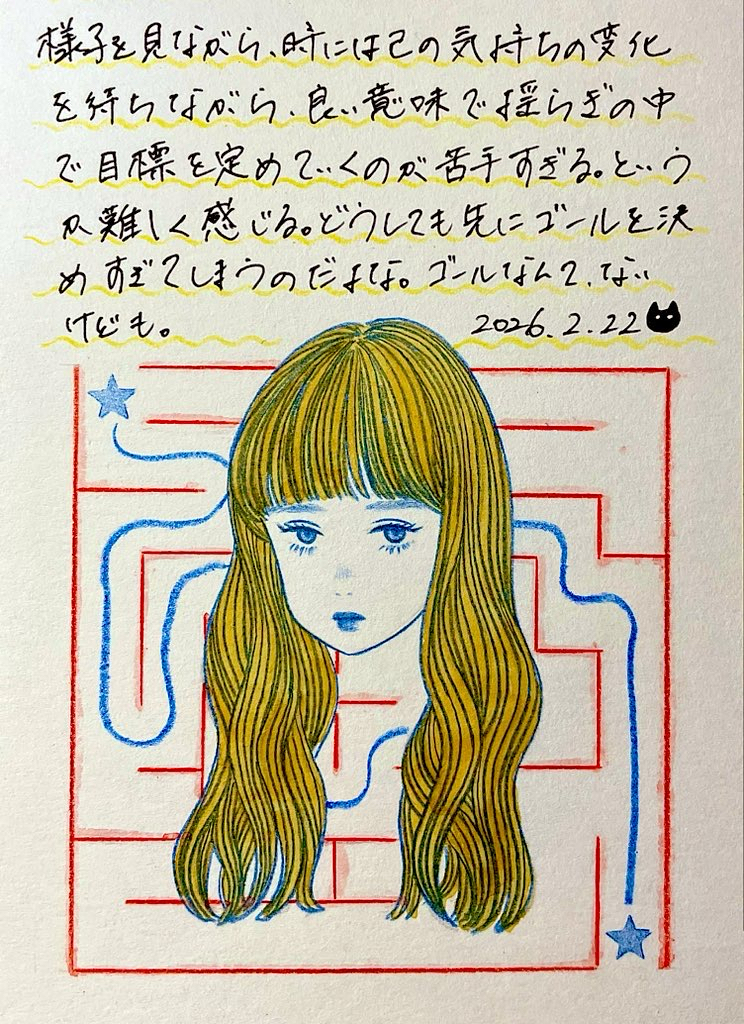 様子を見ながら、時には己の気持ちの変化
を待ちながら、良い意味で揺らぎの中
で目標を定めていくのが苦手すぎる。という
か難しく感じる。どうしても先にゴールを決
めすぎてしまうのだよな。ゴールなんて、ない
けども。 2026.2.22